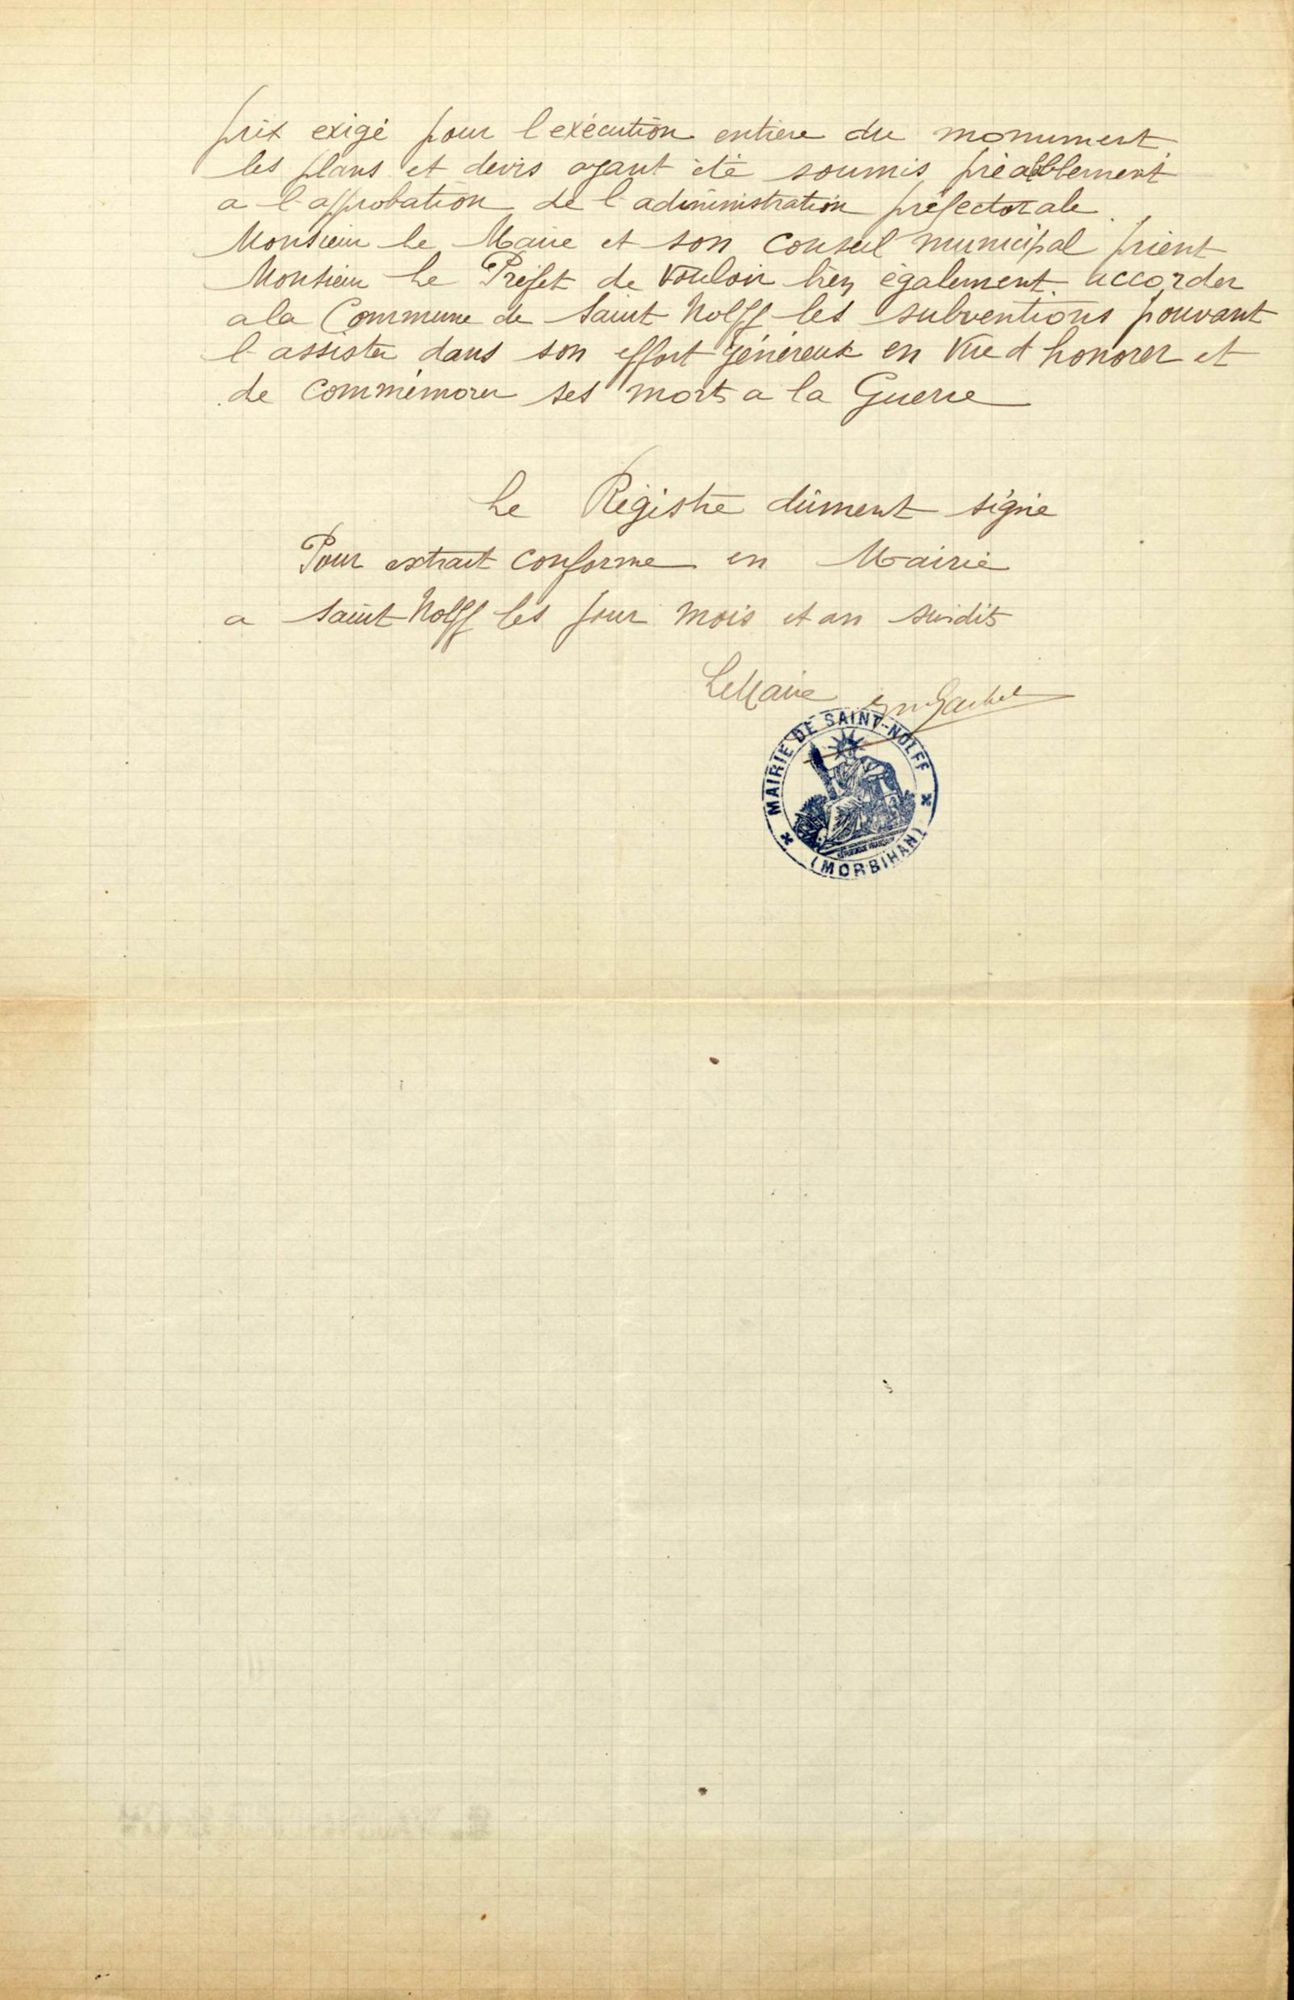 prix exigé pour l'exécution entière du monument
les plans et devis ayant été soumis préablement
a l'approbation de l'administration préfectorale.
Monsieur le Maire et son conseil municipal prient
Monsieur le Préfet de vouloir bien également accorder
a la Commune de Saint Nolff les subventions pouvant
l'assister dans son effort généreux en vue d'honorer et
de commémorer ses morts a la Guerre
Le Registre dûment signé
Pour extrait conforme en Mairie
a Saint Nolff les jour mois et an susdits
Le Maire
MAIRIE DE SAINT-NOLFF
(MORBIHAN)